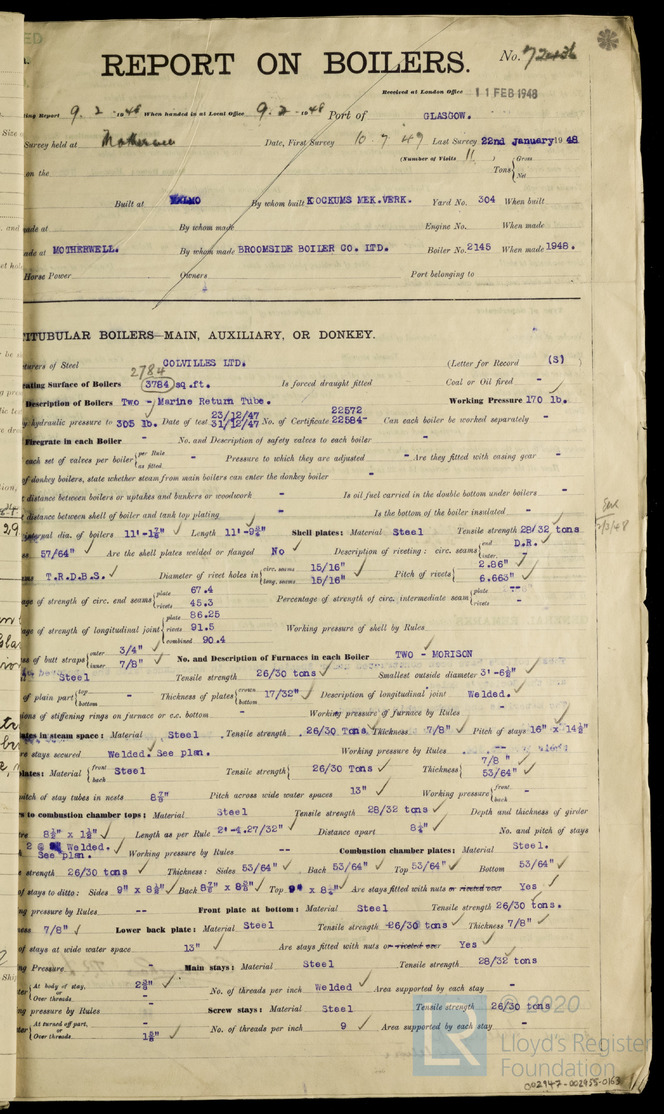 ED
REPORT ON BOILERS.
No.
Received at London Office 11 FEB 1948
ing Report 9. 2. 1948 When handed in at Local Office 9. 2. 1948 Port of GLASGOW.
Survey held at Motherwell Date, First Survey 10 . 7 . 47 Last Survey 22nd January 1948
(Number of Visits 11 )
on the Tons { Gross Net
Built at MALMO By whom built KOCKUMS MEK.VERK. Yard No. 304 When built
ade at By whom made Engine No. When made
ade at MOTHERWELL. By whom made BROOMSIDE BOILER CO. LTD. Boiler No. 2145 When made 1948.
Horse Power Owners Port belonging to
ITUBULAR BOILERS—MAIN, AUXILIARY, OR DONKEY.
turers of Steel COLVILLES LTD. (Letter for Record (S)
2784
ating Surface of Boilers 3784 sq.ft. Is forced draught fitted Coal or Oil fired -
Description of Boilers Two - Marine Return Tube. Working Pressure 170 lb.
y hydraulic pressure to 305 lb. Date of test 23/12/47 31/12/47 No. of Certificate 22572 22584- Can each boiler be worked separately -
Firegrate in each Boiler - No. and Description of safety valves to each boiler -
each set of valves per boiler { per Rule - as fitted Pressure to which they are adjusted - Are they fitted with easing gear -
of donkey boilers, state whether steam from main boilers can enter the donkey boiler -
t distance between boilers or uptakes and bunkers or woodwork - Is oil fuel carried in the double bottom under boilers -
distance between shell of boiler and tank top plating - Is the bottom of the boiler insulated -
internal dia. of boilers 11'-1⅞" Length 11'-9¾" Shell plates: Material Steel Tensile strength 28/32 tons
57/64" Are the shell plates welded or flanged No Description of riveting: circ. seams { end D.R. inter. -
ms T.R.D.B.S. Diameter of rivet holes in { circ. seams 15/16" long. seams 15/16" Pitch of rivets { 2.86" 6.663"
age of strength of circ. end seams { plate 67.4 rivets 45.3 Percentage of strength of circ. intermediate seam { plate -- rivets -
age of strength of longitudinal joint { plate 86.25 rivets 91.5 combined 90.4 Working pressure of shell by Rules
ss of butt straps { outer 3/4" inner 7/8" No. and Description of Furnaces in each Boiler TWO - MORISON
Steel Tensile strength 26/30 tons Smallest outside diameter 3'-6½"
of plain part { top bottom - Thickness of plates { crown bottom 17/32" Description of longitudinal joint Welded.
ions of stiffening rings on furnace or c.c. bottom - Working pressure of furnace by Rules
ates in steam space: Material Steel Tensile strength 26/30 Tons Thickness 7/8" Pitch of stays 16" x 14½"
re stays secured Welded. See plan. Working pressure by Rules
plates: Material { front back Steel Tensile strength 26/30 Tons Thickness { 7/8" 53/64"
pitch of stay tubes in nests 8⅞" Pitch across wide water spaces 13" Working pressure { front - back -
rs to combustion chamber tops: Material Steel Tensile strength 28/32 tons Depth and thickness of girder
re 8½" x 1½" Length as per Rule 2'-4.27/32" Distance apart 8¼" No. and pitch of stays
2 @ Welded. See plan. Working pressure by Rules -- Combustion chamber plates: Material Steel.
e strength 26/30 tons Thickness: Sides 53/64" Back 53/64" Top 53/64" Bottom 53/64"
of stays to ditto: Sides 9" x 8½" Back 8⅞" x 8⅝" Top 9" x 8¼" Are stays fitted with nuts or riveted over Yes
ng pressure by Rules -- Front plate at bottom: Material Steel Tensile strength 26/30 tons.
ess 7/8" Lower back plate: Material Steel Tensile strength 26/30 tons Thickness 7/8"
of stays at wide water space 13" Are stays fitted with nuts or riveted over Yes
ng Pressure - Main stays: Material Steel Tensile strength 28/32 tons
ter { At body of stay, or Over threads 2⅜" - No. of threads per inch Welded Area supported by each stay -
ng pressure by Rules - Screw stays: Material Steel Tensile strength 26/30 tons
ter { At turned off part, or Over threads - 1⅝" No. of threads per inch 9 Area supported by each stay -
LR © 2020
Lloyd's Register
Foundation
002947-002955-0163